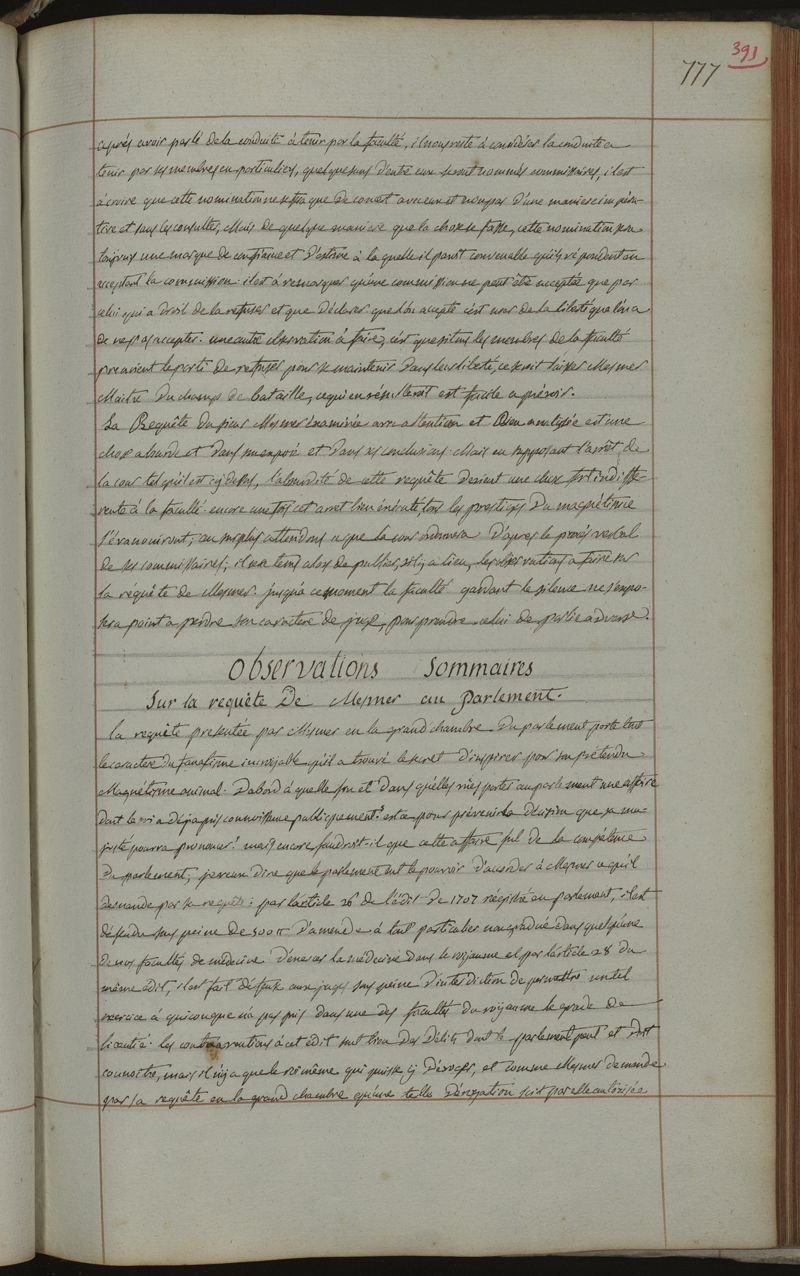 391
777
après avoir parlé de la conduite à tenir par la faculté, il nous reste à considérer la conduite a
tenir par ses membres en particulier, quelques uns d'entre eux seront nommés commissaires, il est
à croire que cette nomination ne se fera que de concert avec eux et non pas d'une maniere impéra-
tive et sans les consulter, Mais de quelque maniere que la chose se fasse, cette nomination sera
toujours une marque de confiance et d'estime à la quelle il paroit convenable qu'ils répondent en
acceptant la commission. il est à remarquer qu'une commission ne peut être acceptée que par
celui qui a droit de la refuser et que déclarer que l'on accepte c'est user de la liberté que l'on a
de ne pas accepter. une autre observation à faire, c'est que si tous les membres de la faculté
prenoient le parti de refuser pour se maintenir dans leur liberté, ce seroit laisser Mesmer
Maitre du champs de bataille, ce qui en résulteroit est facile a prévoir.
La Requête du sieur Mesmer examinée avec attention et Bien analysée est une
chose absurde et dans son exposé et dans ses conclusions. Mais en supposant l'arrêt de
la cour tel qu'il est cy dessus, l'absurdité de cette requête devient une chose fort indiffé-
rente à la faculté. encore une fois cet arret bien éxécuté, tous les prestiges du magnétisme
s'évanouiront, au surplus attendons ce que la cour ordonnera d'après le procés verbal
de ses commissaires; il sera tems alors de publier, s'il y a lieu, les observations a faire sur
la requête de Mesmer. jusqu'a ce moment la faculté gardant le silence ne s'expo-
sera point a perdre son caractere de juge, pour prendre celui de partie adverse.
Observations Sommaires
Sur la requête De Mesmer au Parlement.
la requête presentée par Mesmer en la grand chambre du parlement porte tout
le caractere du fanatisme incroyable qu'il a trouvé le secret d'inspirer pour son prétendu
Magnétisme animal. D'abord à quelle fin et dans quelles vües porter au parlement une affaire
dont le roi a déja pris connoissance publiquement? est ce pour prévenir la décision que sa ma-
jesté pourra prononcer? mais encore faudroit-il que cette affaire fut de la compétence
du parlement, je veux dire que le parlement eut le pouvoir d'accorder à Mesmer ce qu'il
demande par sa requête: par l'article 26 de l'édit de 1707 régistré au parlement, il est
défendu sous peine de 500 tt d'amende à tout particulier non gradué dans quelqu'une
de nos facultés de médecine d'éxercer la médecine dans le royaume et par l'article 28 du
même édit, il est fait défense aux juges sous peine d'interdiction de permettre un tel
exercice à quiconque n'a pas pris dans une des facultés du royaume le grade de
licentié. les contraventions à cet édit sont bien des délits dont le parlement peut et doit
connoitre, mais il n'y a que le roi même qui puisse y déroger, et comme Mesmer demande
par sa requête en la grand chambre qu'une telle dérogation soit par elle autorisée